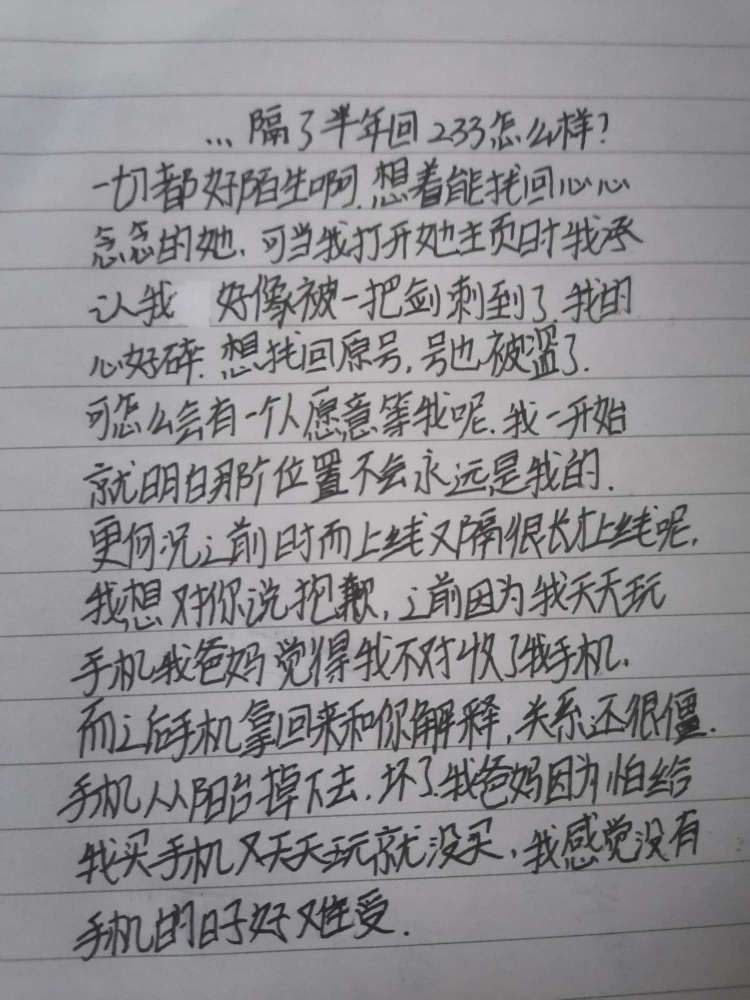 ...隔了半年回233怎么样?
一切都好陌生啊.想着能找回心心
念念的她.可当我打开她主页时我承
认我 好像被一把剑刺到了.我的
心好碎.想找回原号,号也被盗了.
可怎么会有一个人愿意等我呢.我一开始
就明白那阶位置不会永远是我的.
更何况之前时而上线又隔很长才上线呢.
我想对你说抱歉,之前因为我天天玩
手机我爸妈觉得我不对收了我手机.
而之后手机拿回来和你解释,关系还很僵.
手机从阳台掉下去.坏了.我爸妈因为怕给
我买手机又天天玩就没买.我感觉没有
手机的日子好难受.